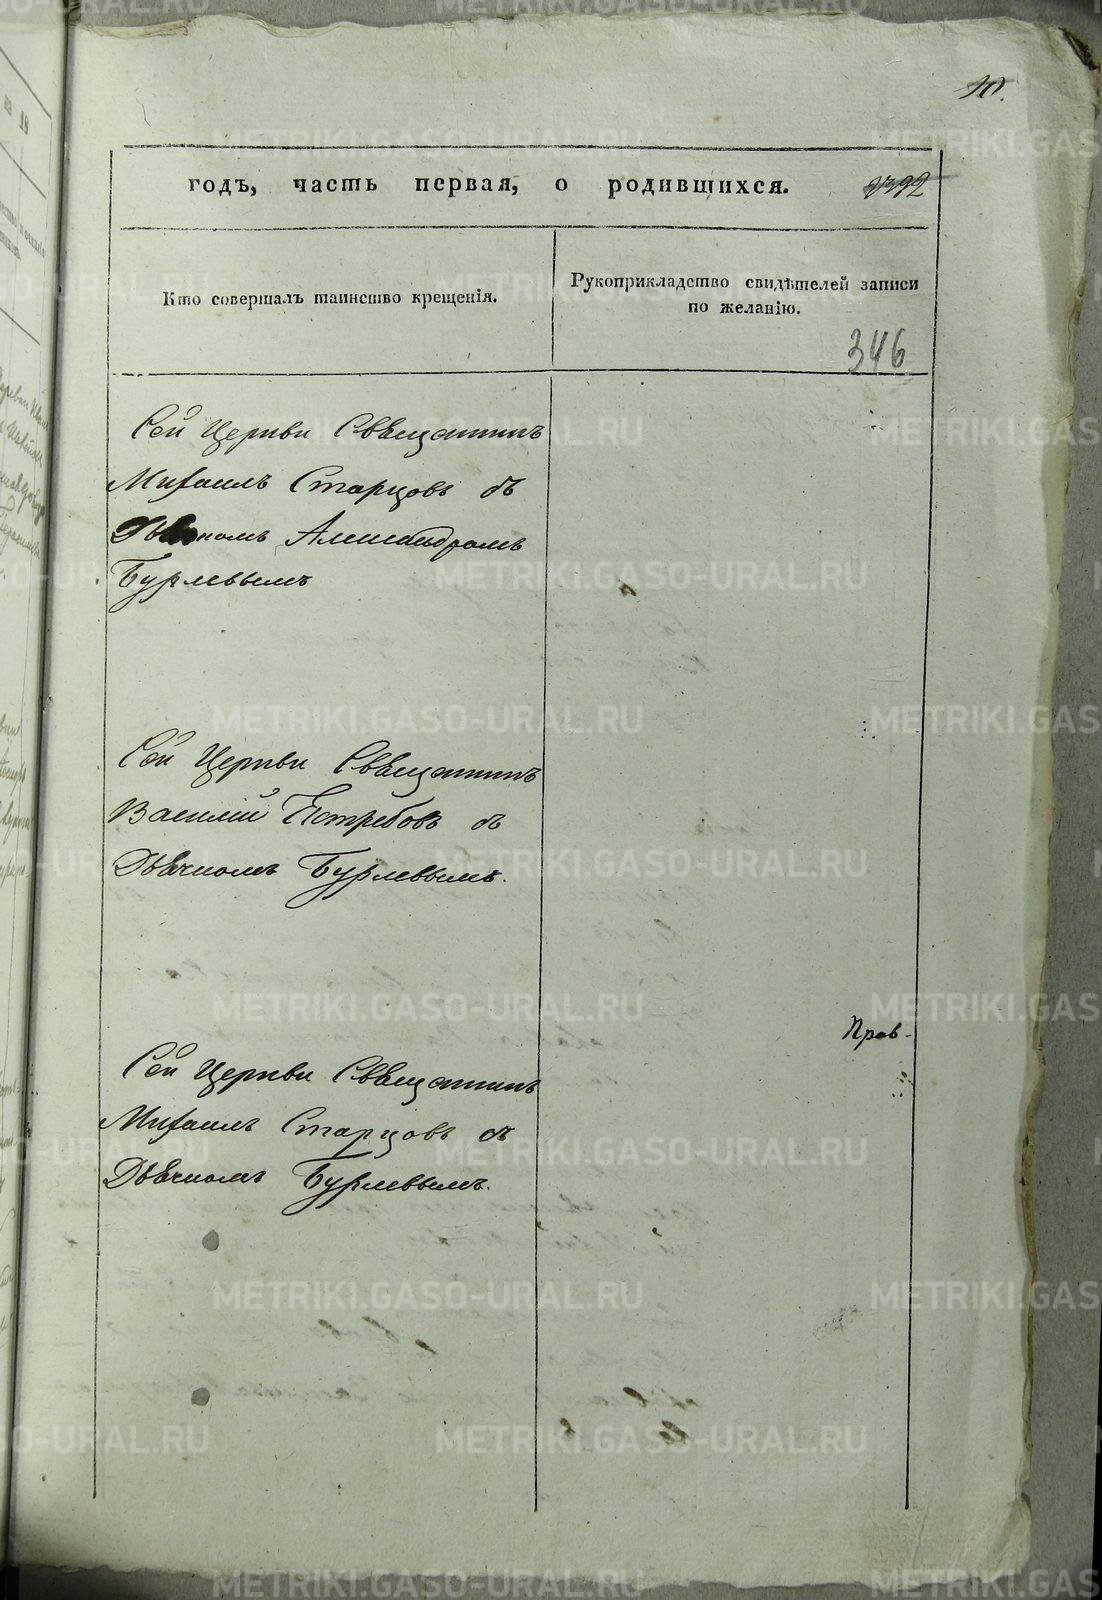 10.
годъ, часть первая, о родившихся. 2392
Кто совершалъ таинство крещенія.
Рукоприкладство свидѣтелей записи
по желанію.
346
Сей Церкви Священникъ
Михаилъ Старцовъ съ
Дьячкомъ Александромъ
Бурлевымъ
Сей Церкви Священникъ
Василій Ястребовъ съ
Дьячкомъ Бурлевымъ.
Прав.
Сей Церкви Священникъ
Михаилъ Старцовъ съ
Дьячкомъ Бурлевымъ.
METRIKI.GASO-URAL.RU